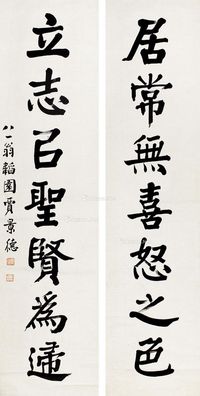 居常無喜怒之色
立志㠯聖賢為歸
八一翁韜園賈景德